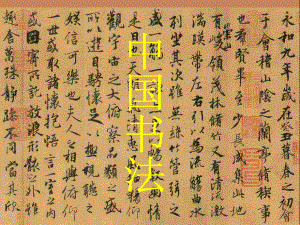 中国书法
永和九年歲在癸丑暮春之初會
于會稽山陰之蘭亭脩稧事
也群賢畢至少長咸集此地
有崇山峻領茂林脩竹又有清流激
湍暎帶左右引以為流觴曲水
列坐其次雖無絲竹管弦之
盛一觴一詠幽情
是日也天清惠風仰
觀宇宙之大俯察品類之盛
所以遊目騁懷足以極視聽之
娛信可樂也夫人之相與俯仰
一世或取諸懷抱悟言一室之內
或因寄所託放浪形骸之外雖
趣舍萬殊靜躁不同當其欣